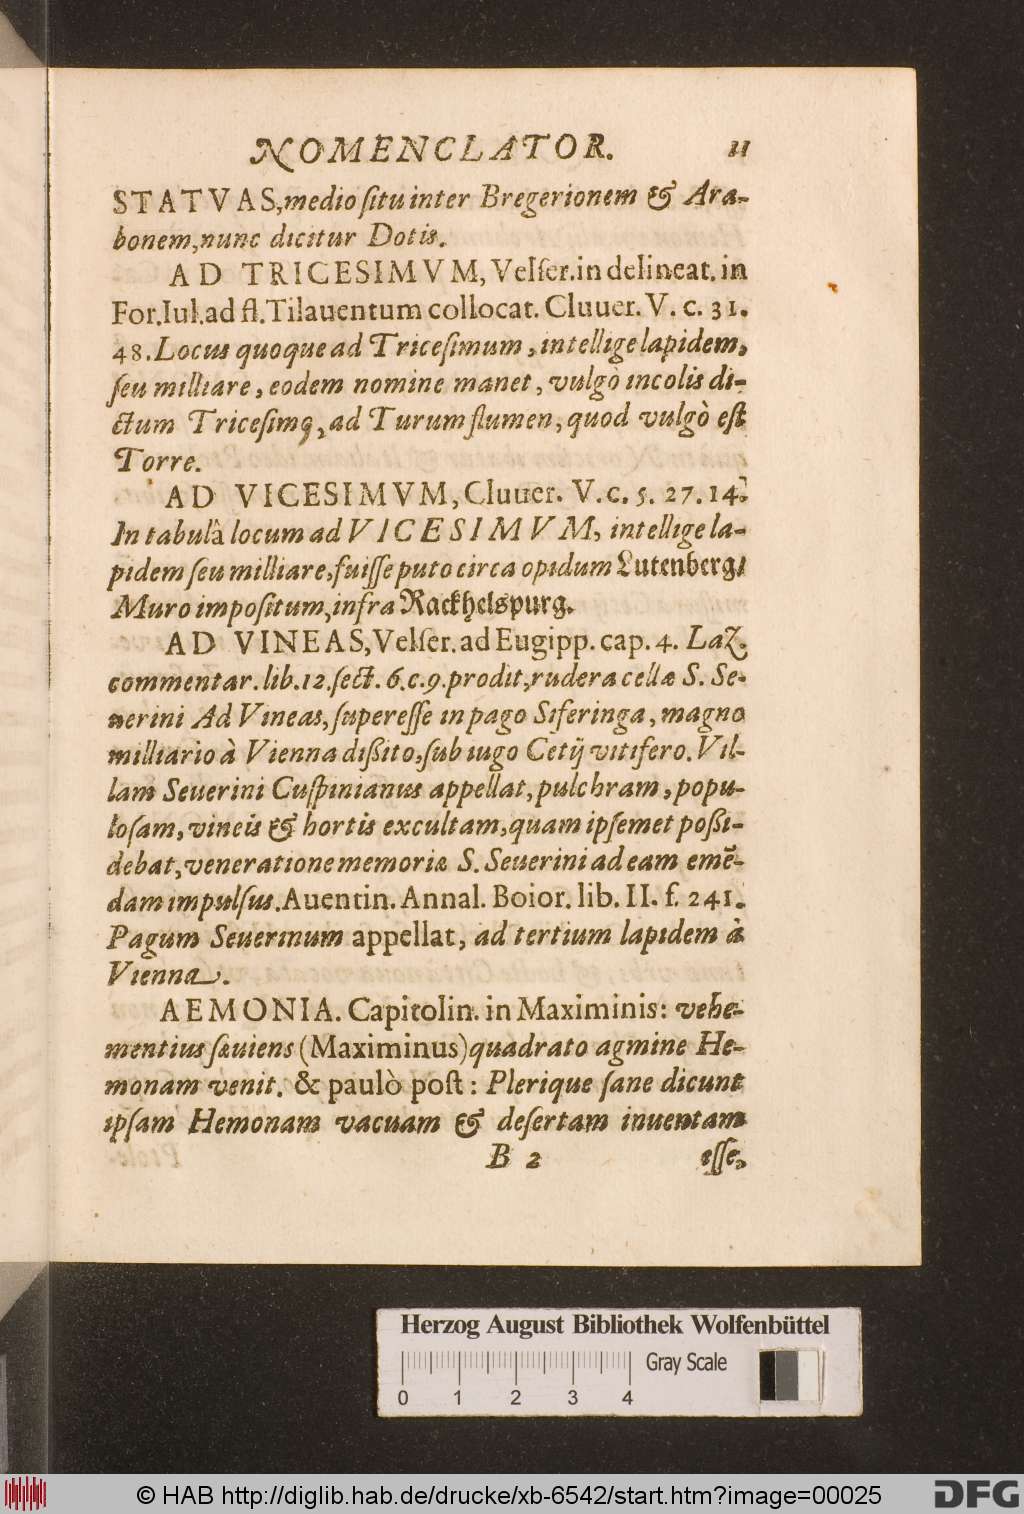 NOMENCLATOR. 11
STATVAS, medio ſitu inter Bregerionem & Ara-
bonem, nunc dicitur Dotis.
AD TRICESIMVM, Velſer. in delineat. in
For. Iul. ad fl. Tilauentum collocat. Cluuer. V. c. 31.
48. Locus quoque ad Triceſimum, intellige lapidem,
ſeu milliare, eodem nomine manet, vulgò incolis di-
ctum Triceſimo, ad Turum flumen, quod vulgò eſt
Torre.
AD VICESIMVM, Cluuer. V. c. 5. 27. 14.
In tabulâ locum ad VICESIMVM, intellige la-
pidem ſeu milliare, fuiſſe puto circa opidum Lutenberg/
Muro impoſitum, infra Rackhelspurg.
AD VINEAS, Velſer. ad Eugipp. cap. 4. Laz.
commentar. lib. 12. ſect. 6. c. 9. prodit, rudera cellæ S. Se-
uerini Ad Vineas, ſupereſſe in pago Siferinga, magno
milliario à Vienna dißito, ſub iugo Cetij vitifero. Vil-
lam Seuerini Cuſpinianus appellat, pulchram, popu-
loſam, vineis & hortis excultam, quam ipſemet poßi-
debat, veneratione memoriæ S. Seuerini ad eam emē-
dam impulſus. Auentin. Annal. Boior. lib. II. f. 241.
Pagum Seuerinum appellat, ad tertium lapidem à
Vienna.
AEMONIA. Capitolin. in Maximinis: vehe-
mentius ſæuiens (Maximinus) quadrato agmine He-
monam venit. & paulò poſt: Plerique ſane dicunt
ipſam Hemonam vacuam & deſertam inuentam
B 2 eſſe,
Herzog August Bibliothek Wolfenbüttel
Gray Scale
0 1 2 3 4
© HAB http://diglib.hab.de/drucke/xb-6542/start.htm?image=00025
DFG